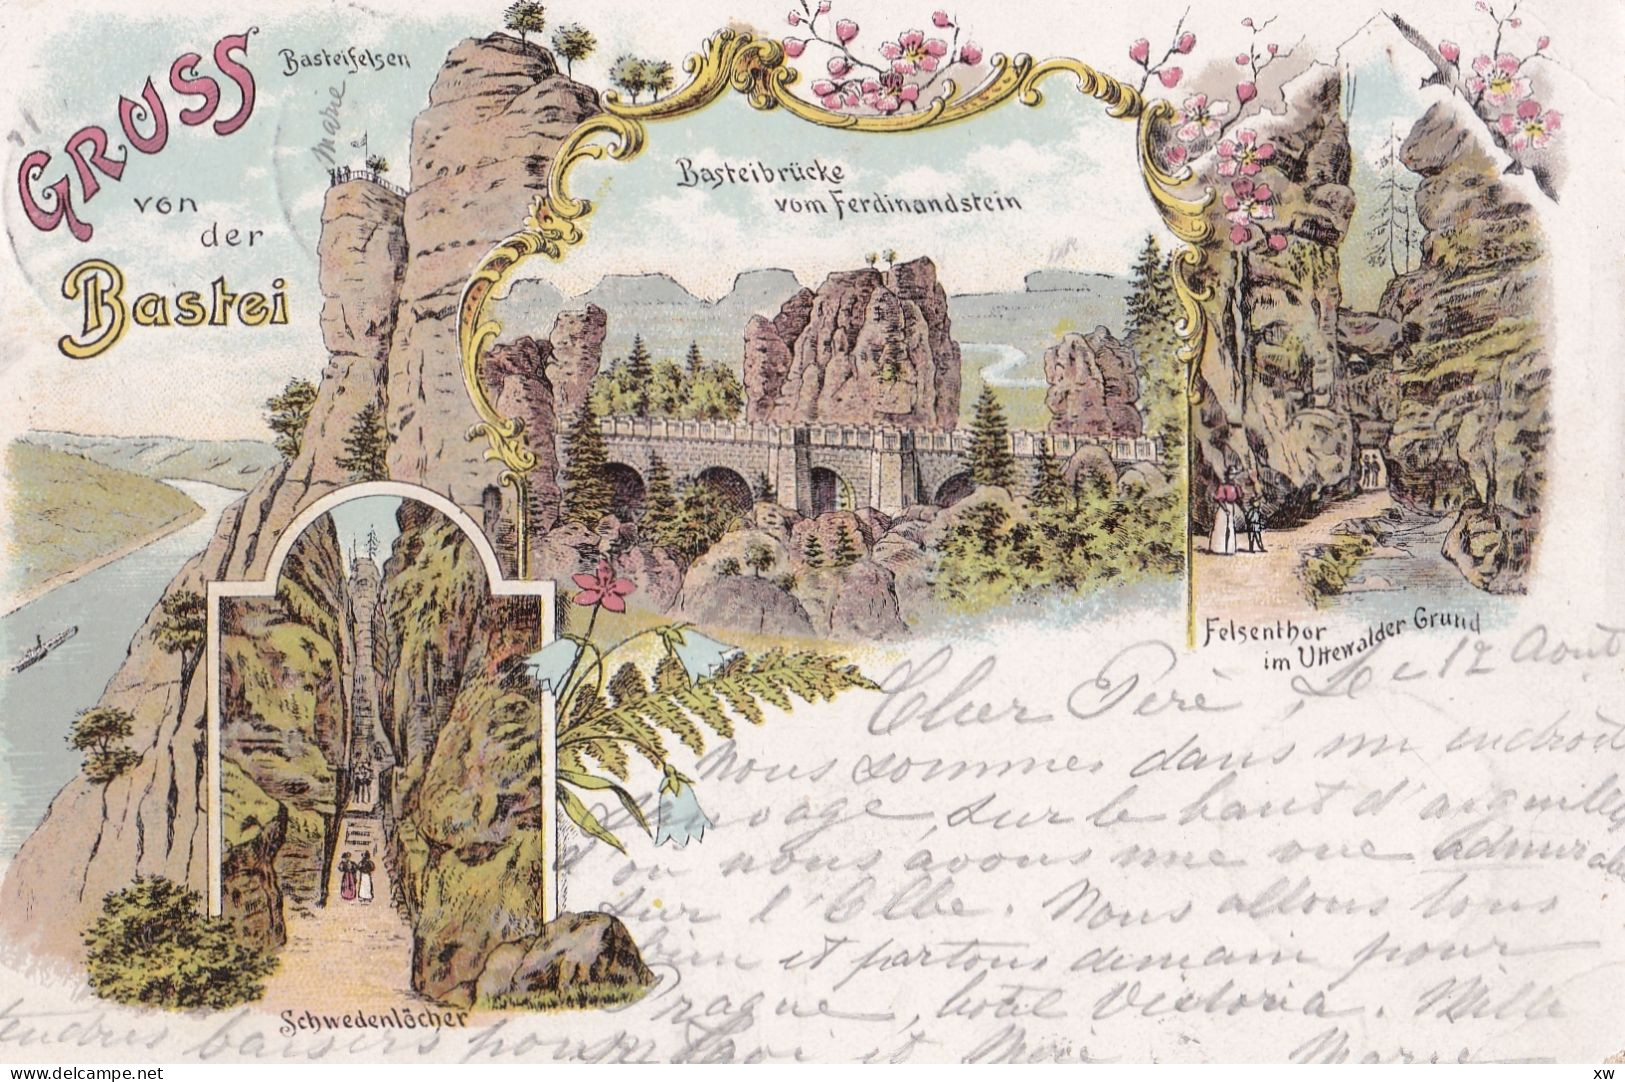 GRUSS
von
der
Bastei
Basteifelsen
Marie
Basteibrücke
vom Ferdinandstein
Felsenthor
im Uttewalder Grund
Schwedenlöcher
Cher Père, Le 12 Août
Nous sommes dans un endroit
sauvage, sur le haut d'aiguilles
d'où nous avons une vue admirable
sur l'Elbe. Nous allons tous
bien et partons demain pour
Prague, hôtel Victoria. Mille
tendres baisers pour toi et
Marie
delcampe.net
xw